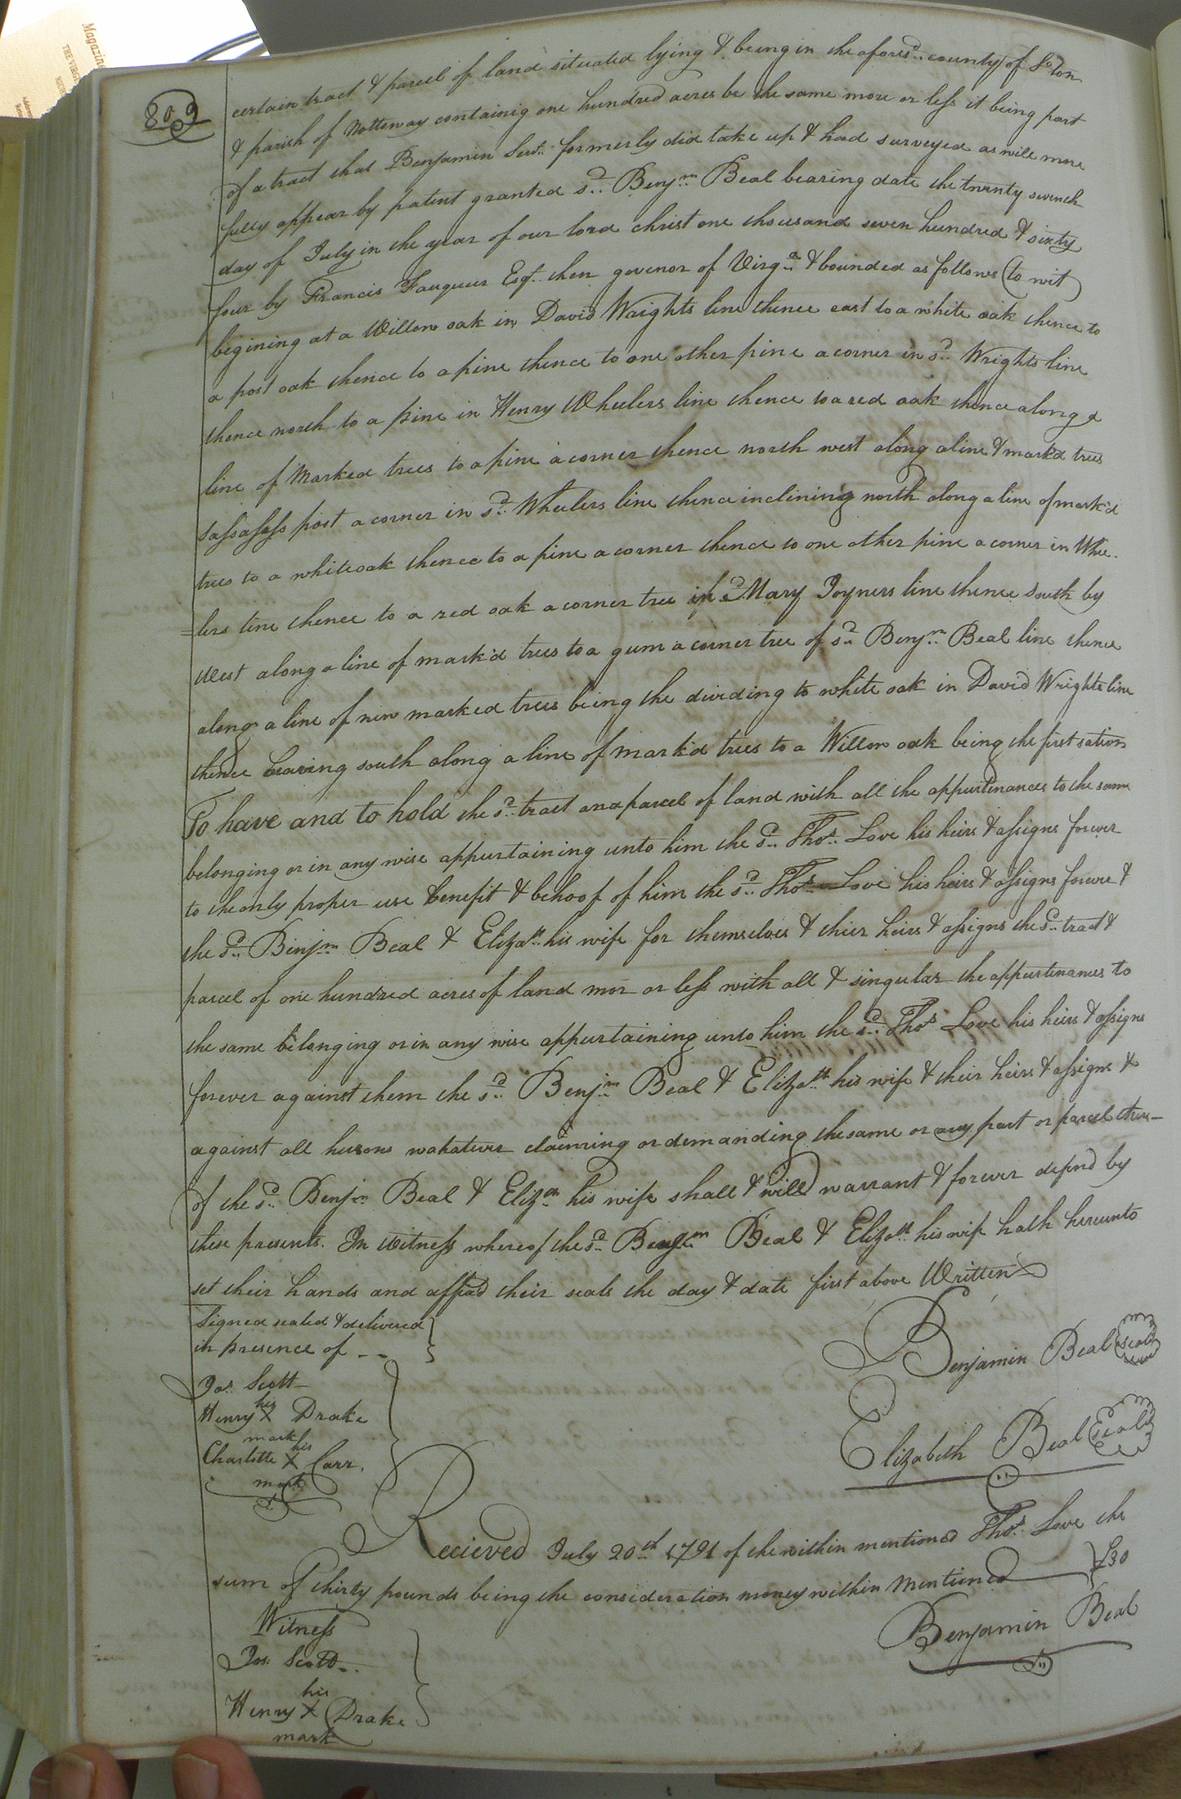 Magazin
809
certain tract & parcel of land situated lying & being in the afores.d county of S.ton
& parish of Nottoway containig one hundred acres be the same more or less it being part
of a tract that Benjamin formerly did take up & had surveyed as will more
fully appear by patent granted s.d Benj.m Beal bearing date the twenty seventh
day of July in the year of our lord christ one thousand seven hundred & sixty
four by Francis Fauqueur Esq.r then govenor of Virg.a & bounded as follows (to wit)
begining at a Willow oak in David Wrights line thence east to a white oak thence to
a post oak thence to a pine thence to one other pine a corner in s.d Wrights line
thence north to a pine in Henry Wheelers line thence to a red oak thence along a
line of Marked trees to a pine a corner thence north west along a line & mark'd trees
sassafass post a corner in s.d Wheelers line thence inclining north along a line of mark'd
trees to a white oak thence to a pine a corner thence to one other pine a corner in Whee-
=lers line thence to a red oak a corner tree in Mary Joyners line thence south by
West along a line of mark'd trees to a gum a corner tree of s.d Benj.m Beal line thence
along a line of new marked trees being the dividing to white oak in David Wrights line
thence bearing south along a line of mark'd trees to a Willow oak being the first sation
To have and to hold the s.d tract and parcel of land with all the appurtinances to the same
belonging or in any wise appurtaining unto him the s.d Tho.s Love his heirs & assigns forever
to the only proper use benefit & behoof of him the s.d Tho.s Love his heirs & assigns forever &
the s.d Binj.m Beal & Eliza.th his wife for themselves & their heirs & assigns the s.d tract &
parcel of one hundred acres of land mor or less with all & singular the appurtinances to
the same belonging or in any wise appurtaining unto him the s.d Tho.s Love his heirs & assigns
forever against them the s.d Benj.m Beal & Eliza.th his wife & their heirs & assigns &
against all persons whatever claiming or demanding the same or any part or parcel there-
of the s.d Benj.m Beal & Eliz.th his wife shall & will warrant & forever defend by
these presents. In Witness whereof the s.d Benj.m Beal & Eliza.th his wife hath hereunto
set their hands and affixd their seals the day & date first above Written
Signed sealed & delivered
in presence of - -
Benjamin Beal (seal)
Jos. Scott
Henry his X mark Drake
Charlotte his X mark Carr.
Elizabeth Beal (Seal)
Recieved July 20.th 1791 of the within mentioned Tho.s Love the
sum of thirty pounds being the consideration money within Mentioned } £30
Witness
Benjamin Beal
Jos. Scott
Henry his X mark Drake